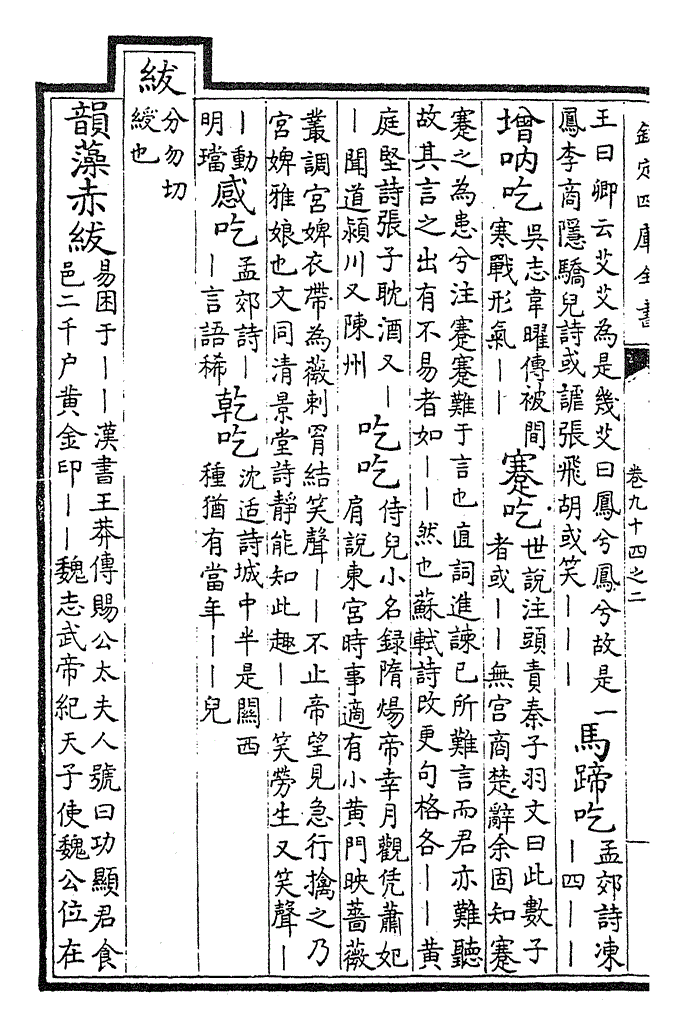 欽定四庫全書
卷九十四之二
王曰卿云艾艾為是幾艾曰鳳兮鳳兮故是一
鳳李商隱驕兒詩或謔張飛胡或笑丨丨丨
馬蹄吃
孟郊詩凍
丨四丨丨
增吶吃
吳志韋曜傳被問
寒戰形氣丨丨
謇吃
世說注頭責秦子羽文曰此數子
者或丨丨無宮商楚辭余固知謇
謇之為患兮注謇謇難于言也直詞進諫已所難言而君亦難聽
故其言之出有不易者如丨丨然也蘇軾詩改更句格各丨丨黃
庭堅詩張子耽酒又丨
丨聞道潁川又陳州
吃吃
侍兒小名録隋煬帝幸月觀凭蕭妃
肩說東宮時事適有小黃門映薔薇
叢調宮婢衣帶為薇刺罥結笑聲丨丨不止帝望見急行擒之乃
宮婢雅娘也文同清景堂詩靜能知此趣丨丨笑勞生又笑聲丨
丨動
明璫
感吃
孟郊詩丨
丨言語稀
乾吃
沈适詩城中半是關西
種猶有當年丨丨兒
紱
分勿切
綬也
韻藻赤紱
易困于丨丨漢書王莽傳賜公太夫人號曰功顯君食
邑二千户黃金印丨丨魏志武帝紀天子使魏公位在